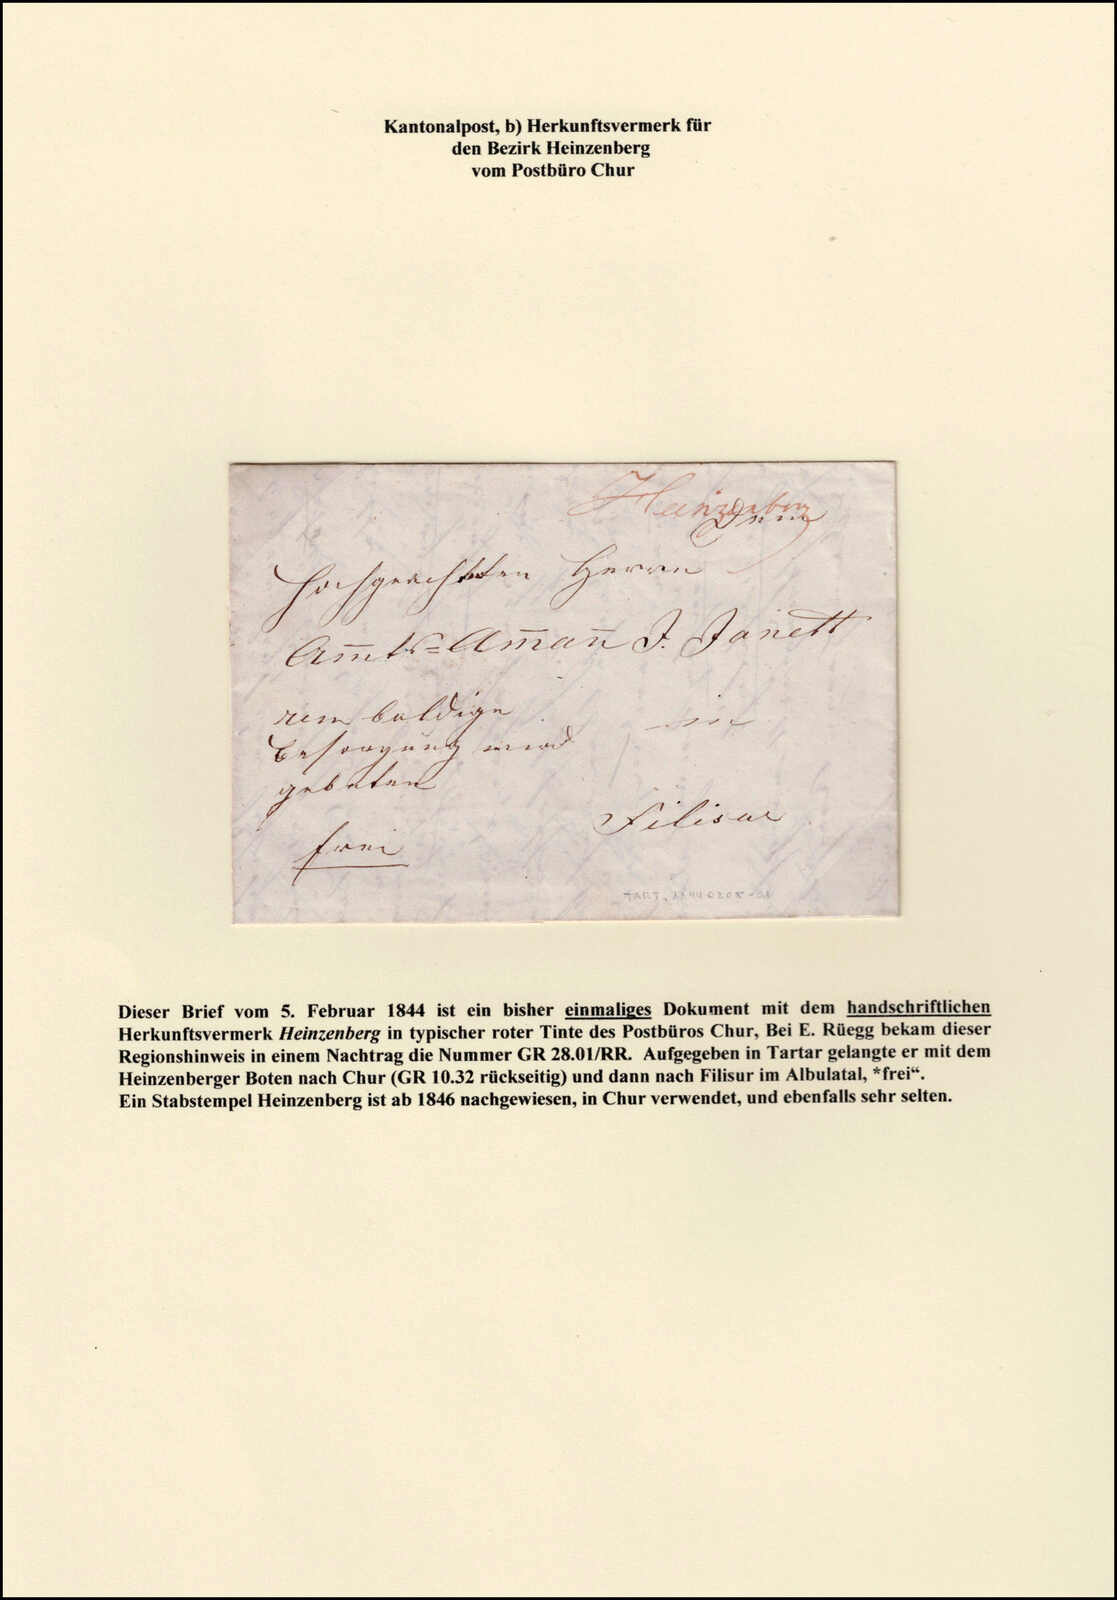 Kantonalpost, b) Herkunftsvermerk für
den Bezirk Heinzenberg
vom Postbüro Chur
Heinzenberg
Dem
Hochgeachteten Herrn
Am̅ts=Am̅an̅ J. Janett
um baldige
Besorgung wird
gebeten
in
Filisur
frei
TART. 18440205-01
Dieser Brief vom 5. Februar 1844 ist ein bisher einmaliges Dokument mit dem handschriftlichen
Herkunftsvermerk Heinzenberg in typischer roter Tinte des Postbüros Chur, Bei E. Rüegg bekam dieser
Regionshinweis in einem Nachtrag die Nummer GR 28.01/RR. Aufgegeben in Tartar gelangte er mit dem
Heinzenberger Boten nach Chur (GR 10.32 rückseitig) und dann nach Filisur im Albulatal, *frei“.
Ein Stabstempel Heinzenberg ist ab 1846 nachgewiesen, in Chur verwendet, und ebenfalls sehr selten.